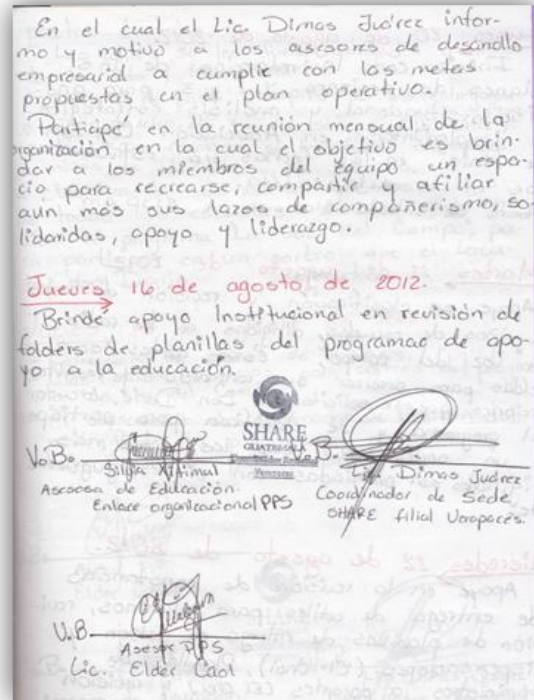 En el cual el Lic. Dimas Juárez infor-
mo y motivo a los asesores de desarrollo
empresarial a cumplir con las metas
propuestas en el plan operativo.
Participé en la reunión mensual de la
organización en la cual el objetivo es brin-
dar a los miembros del equipo un espa-
cio para recrearse, compartir y afiliar
aun más sus lazos de compañerismo, so-
lidaridas, apoyo y liderazgo.
Jueves 16 de agosto de 2012.
Brindé apoyo Institucional en revisión de
folders de planillas del programac de apo-
yo a la educación.
SHARE
GUATEMALA
Verapaces
Vo.Bo. V. B.
Silvia Lic. Dimas Juárez
Asesosa de Educación Coordinador de Sede
Enlace organizacional PPS SHARE filial Verapaces.
V.B
Asesor PPS
Lic. Elder Caal